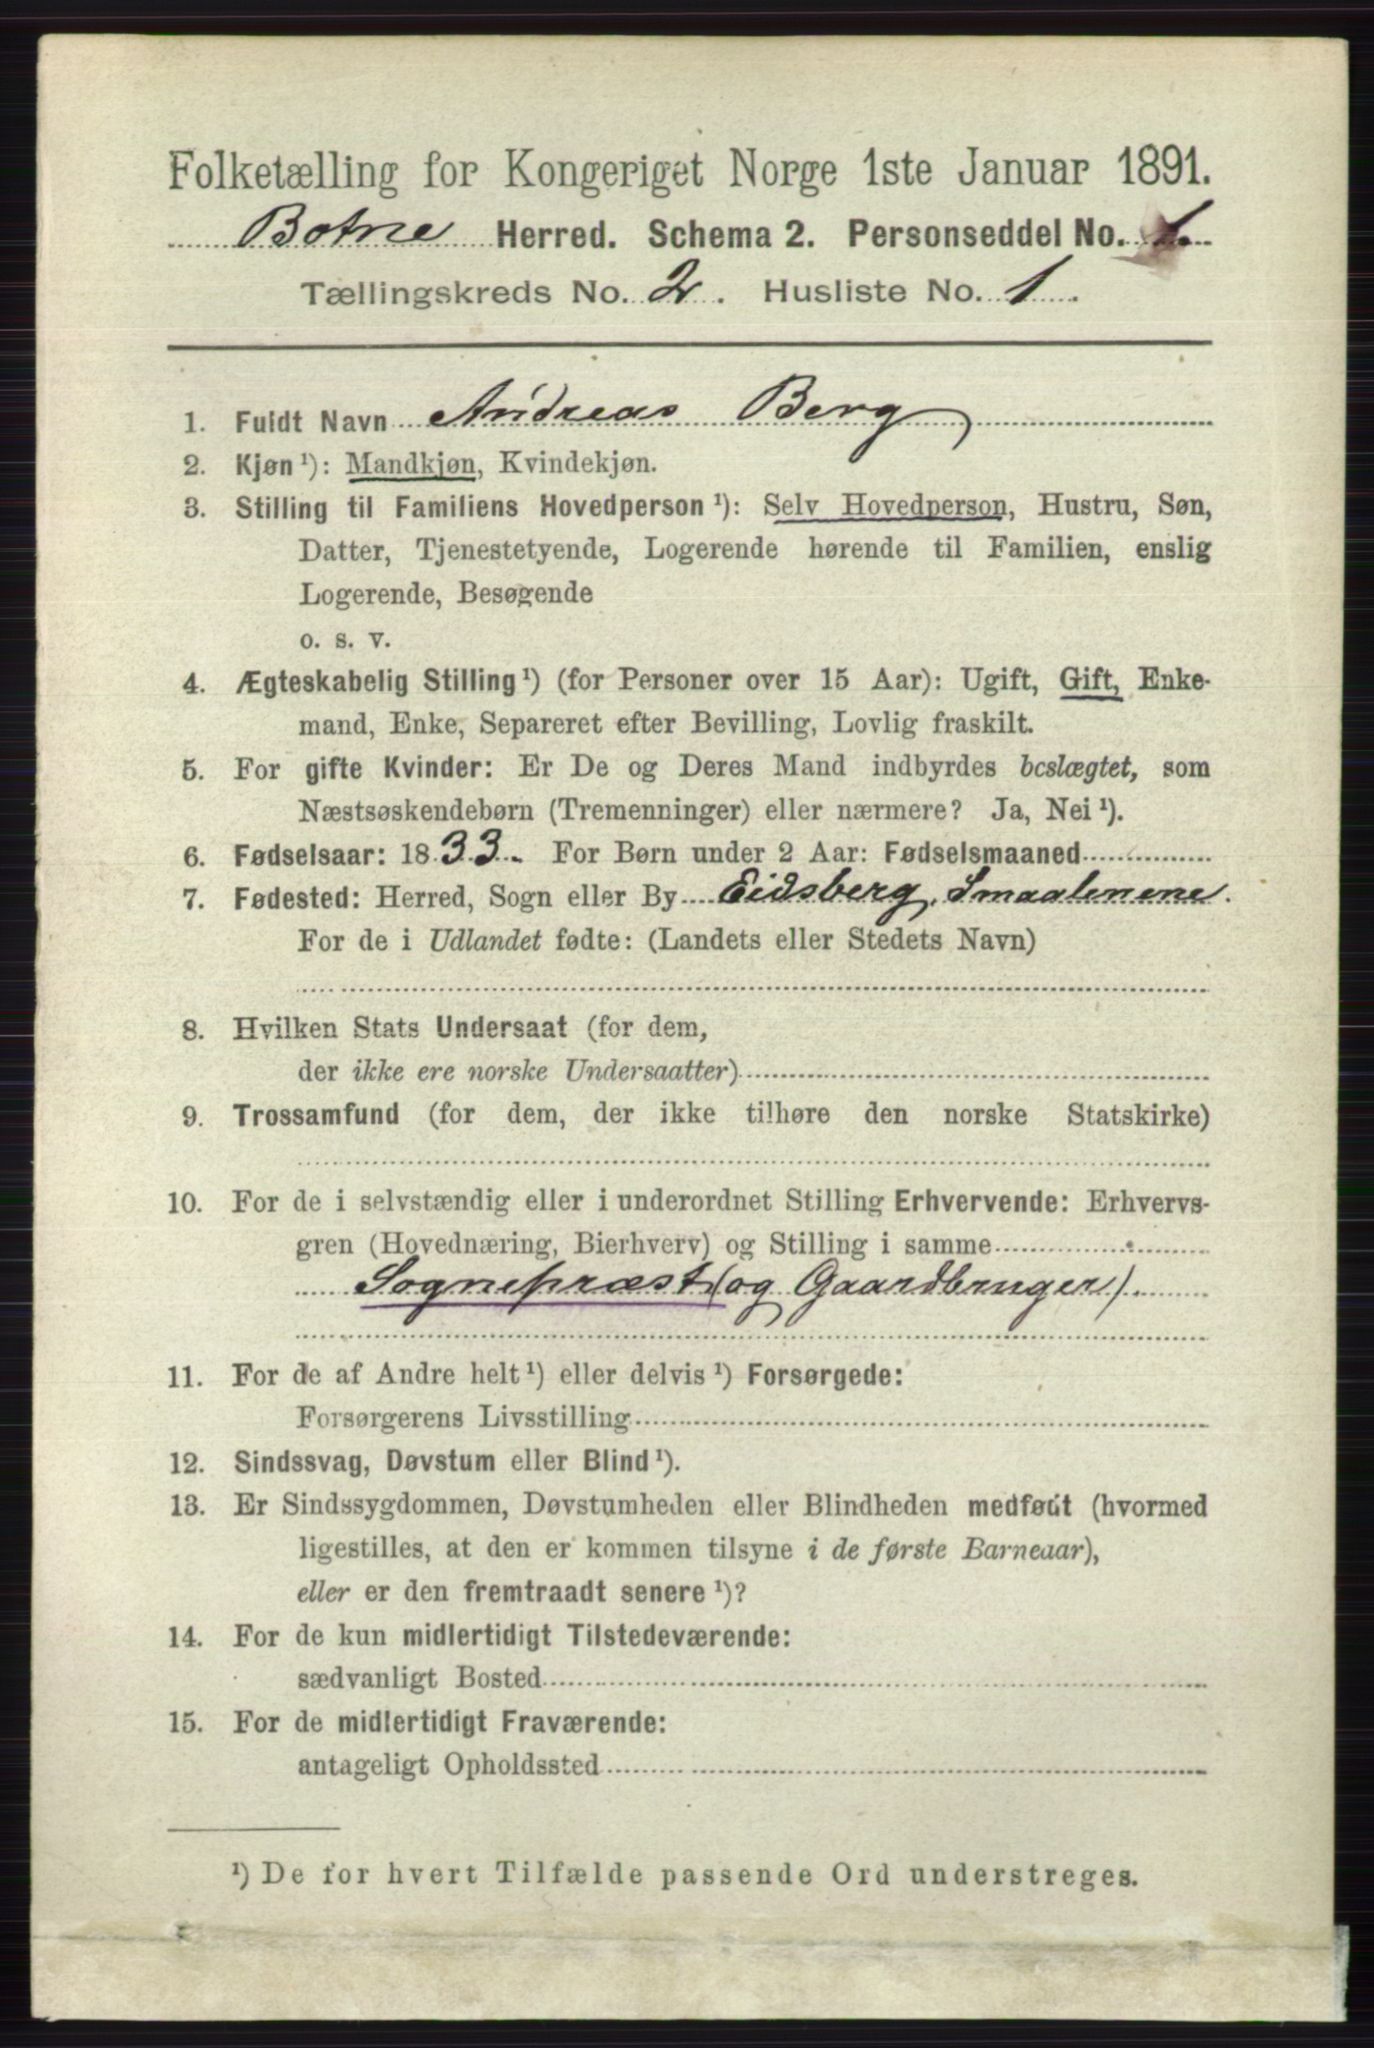 Folketælling for Kongeriget Norge 1ste Januar 1891.
Botne Herred. Schema 2. Personseddel No. 1.
Tællingskreds No. 2. Husliste No. 1.
1. Fuldt Navn Andreas Berg
2. Kjøn ¹): Mandkjøn, Kvindekjøn.
3. Stilling til Familiens Hovedperson ¹): Selv Hovedperson, Hustru, Søn,
Datter, Tjenestetyende, Logerende hørende til Familien, enslig
Logerende, Besøgende
o. s. v.
4. Ægteskabelig Stilling ¹) (for Personer over 15 Aar): Ugift, Gift, Enke-
mand, Enke, Separeret efter Bevilling, Lovlig fraskilt.
5. For gifte Kvinder: Er De og Deres Mand indbyrdes beslægtet, som
Næstsøskendebørn (Tremenninger) eller nærmere? Ja, Nei ¹).
6. Fødselsaar: 1833. For Børn under 2 Aar: Fødselsmaaned
7. Fødested: Herred, Sogn eller By Eidsberg, Smaalenene.
For de i Udlandet fødte: (Landets eller Stedets Navn)
8. Hvilken Stats Undersaat (for dem,
der ikke ere norske Undersaatter)
9. Trossamfund (for dem, der ikke tilhøre den norske Statskirke)
10. For de i selvstændig eller i underordnet Stilling Erhvervende: Erhvervs-
gren (Hovednæring, Bierhverv) og Stilling i samme
Sognepræst (og Gaardbruger).
11. For de af Andre helt ¹) eller delvis ¹) Forsørgede:
Forsørgerens Livsstilling
12. Sindssvag, Døvstum eller Blind ¹).
13. Er Sindssygdommen, Døvstumheden eller Blindheden medfødt (hvormed
ligestilles, at den er kommen tilsyne i de første Barneaar),
eller er den fremtraadt senere ¹)?
14. For de kun midlertidigt Tilstedeværende:
sædvanligt Bosted
15. For de midlertidigt Fraværende:
antageligt Opholdssted
¹) De for hvert Tilfælde passende Ord understreges.